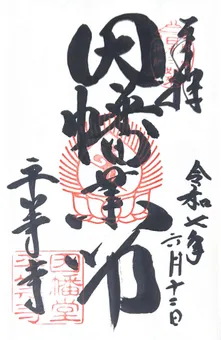 奉拝
令和七年
六月十二日
因幡薬師
平等寺
因幡堂
平等寺